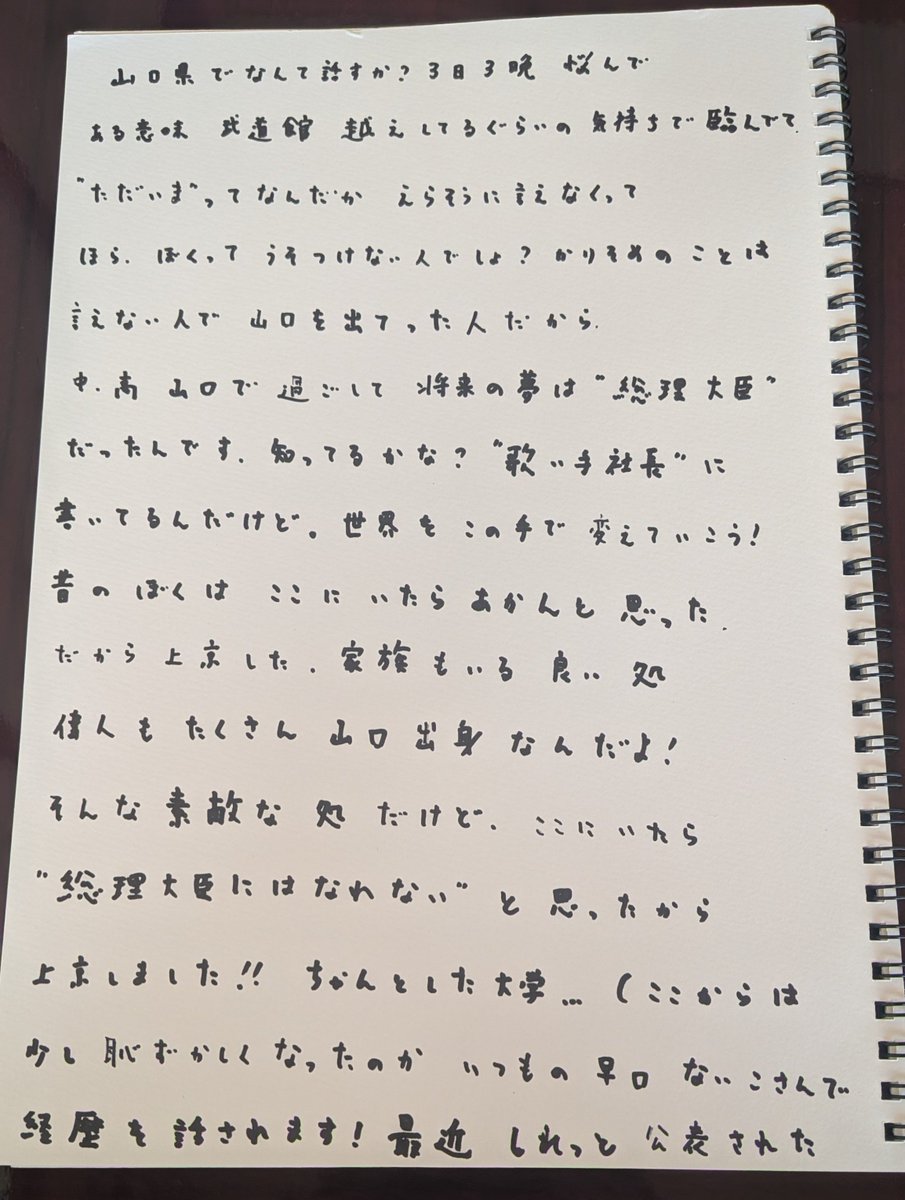 山口県でなんて話すか？3日3晩 悩んで
ある意味 武道館 越えしてるぐらいの 気持ちで臨んでて
"ただいま"ってなんだか えらそうに言えなくって
ほら、ぼくって うそつけない人でしょ？かりそめの ことは
言えない人で 山口を出てった人だから、
中、高 山口で 過ごして 将来の夢は"総理大臣"
だったんです、知ってるかな？"歌い手社長"に
書いてるんだけど。世界を この手で 変えていこう！
昔の ぼくは ここに いたら あかんと 思った、
だから 上京した、家族もいる 良い 処
偉人も たくさん 山口 出身 なんだよ！
そんな 素敵な 処 だけど、ここに いたら
"総理大臣にはなれない" と 思ったから
上京しました!! ちゃんとした大学…（ここからは
少し 恥ずかしくなったのか いつもの 早口 ないこさんで
経歴を 話されます！最近 しれっと 公表された